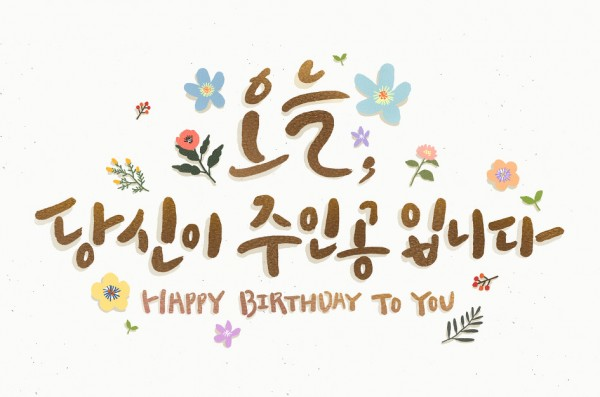 오늘,
당신이 주인공 입니다
HAPPY BIRTHDAY TO YOU